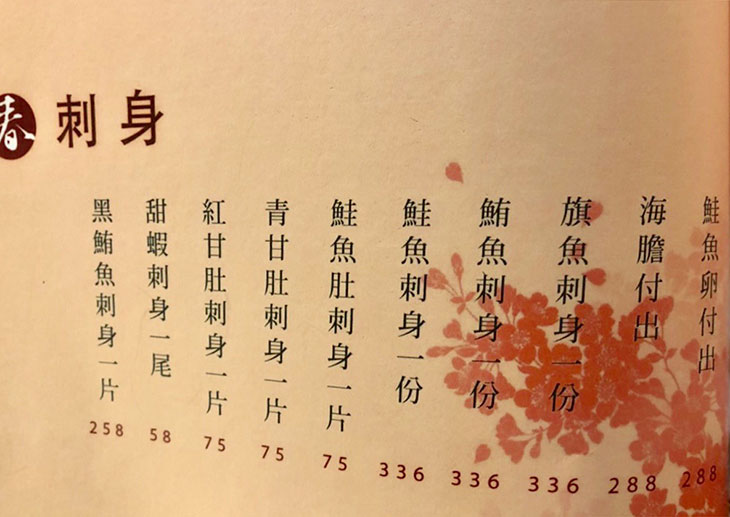 春 刺身
鮭魚卵付出 288
海膽付出 288
旗魚刺身一份 336
鮪魚刺身一份 336
鮭魚刺身一份 336
鮭魚肚刺身一片 75
青甘肚刺身一片 75
紅甘肚刺身一片 75
甜蝦刺身一尾 58
黑鮪魚刺身一片 258